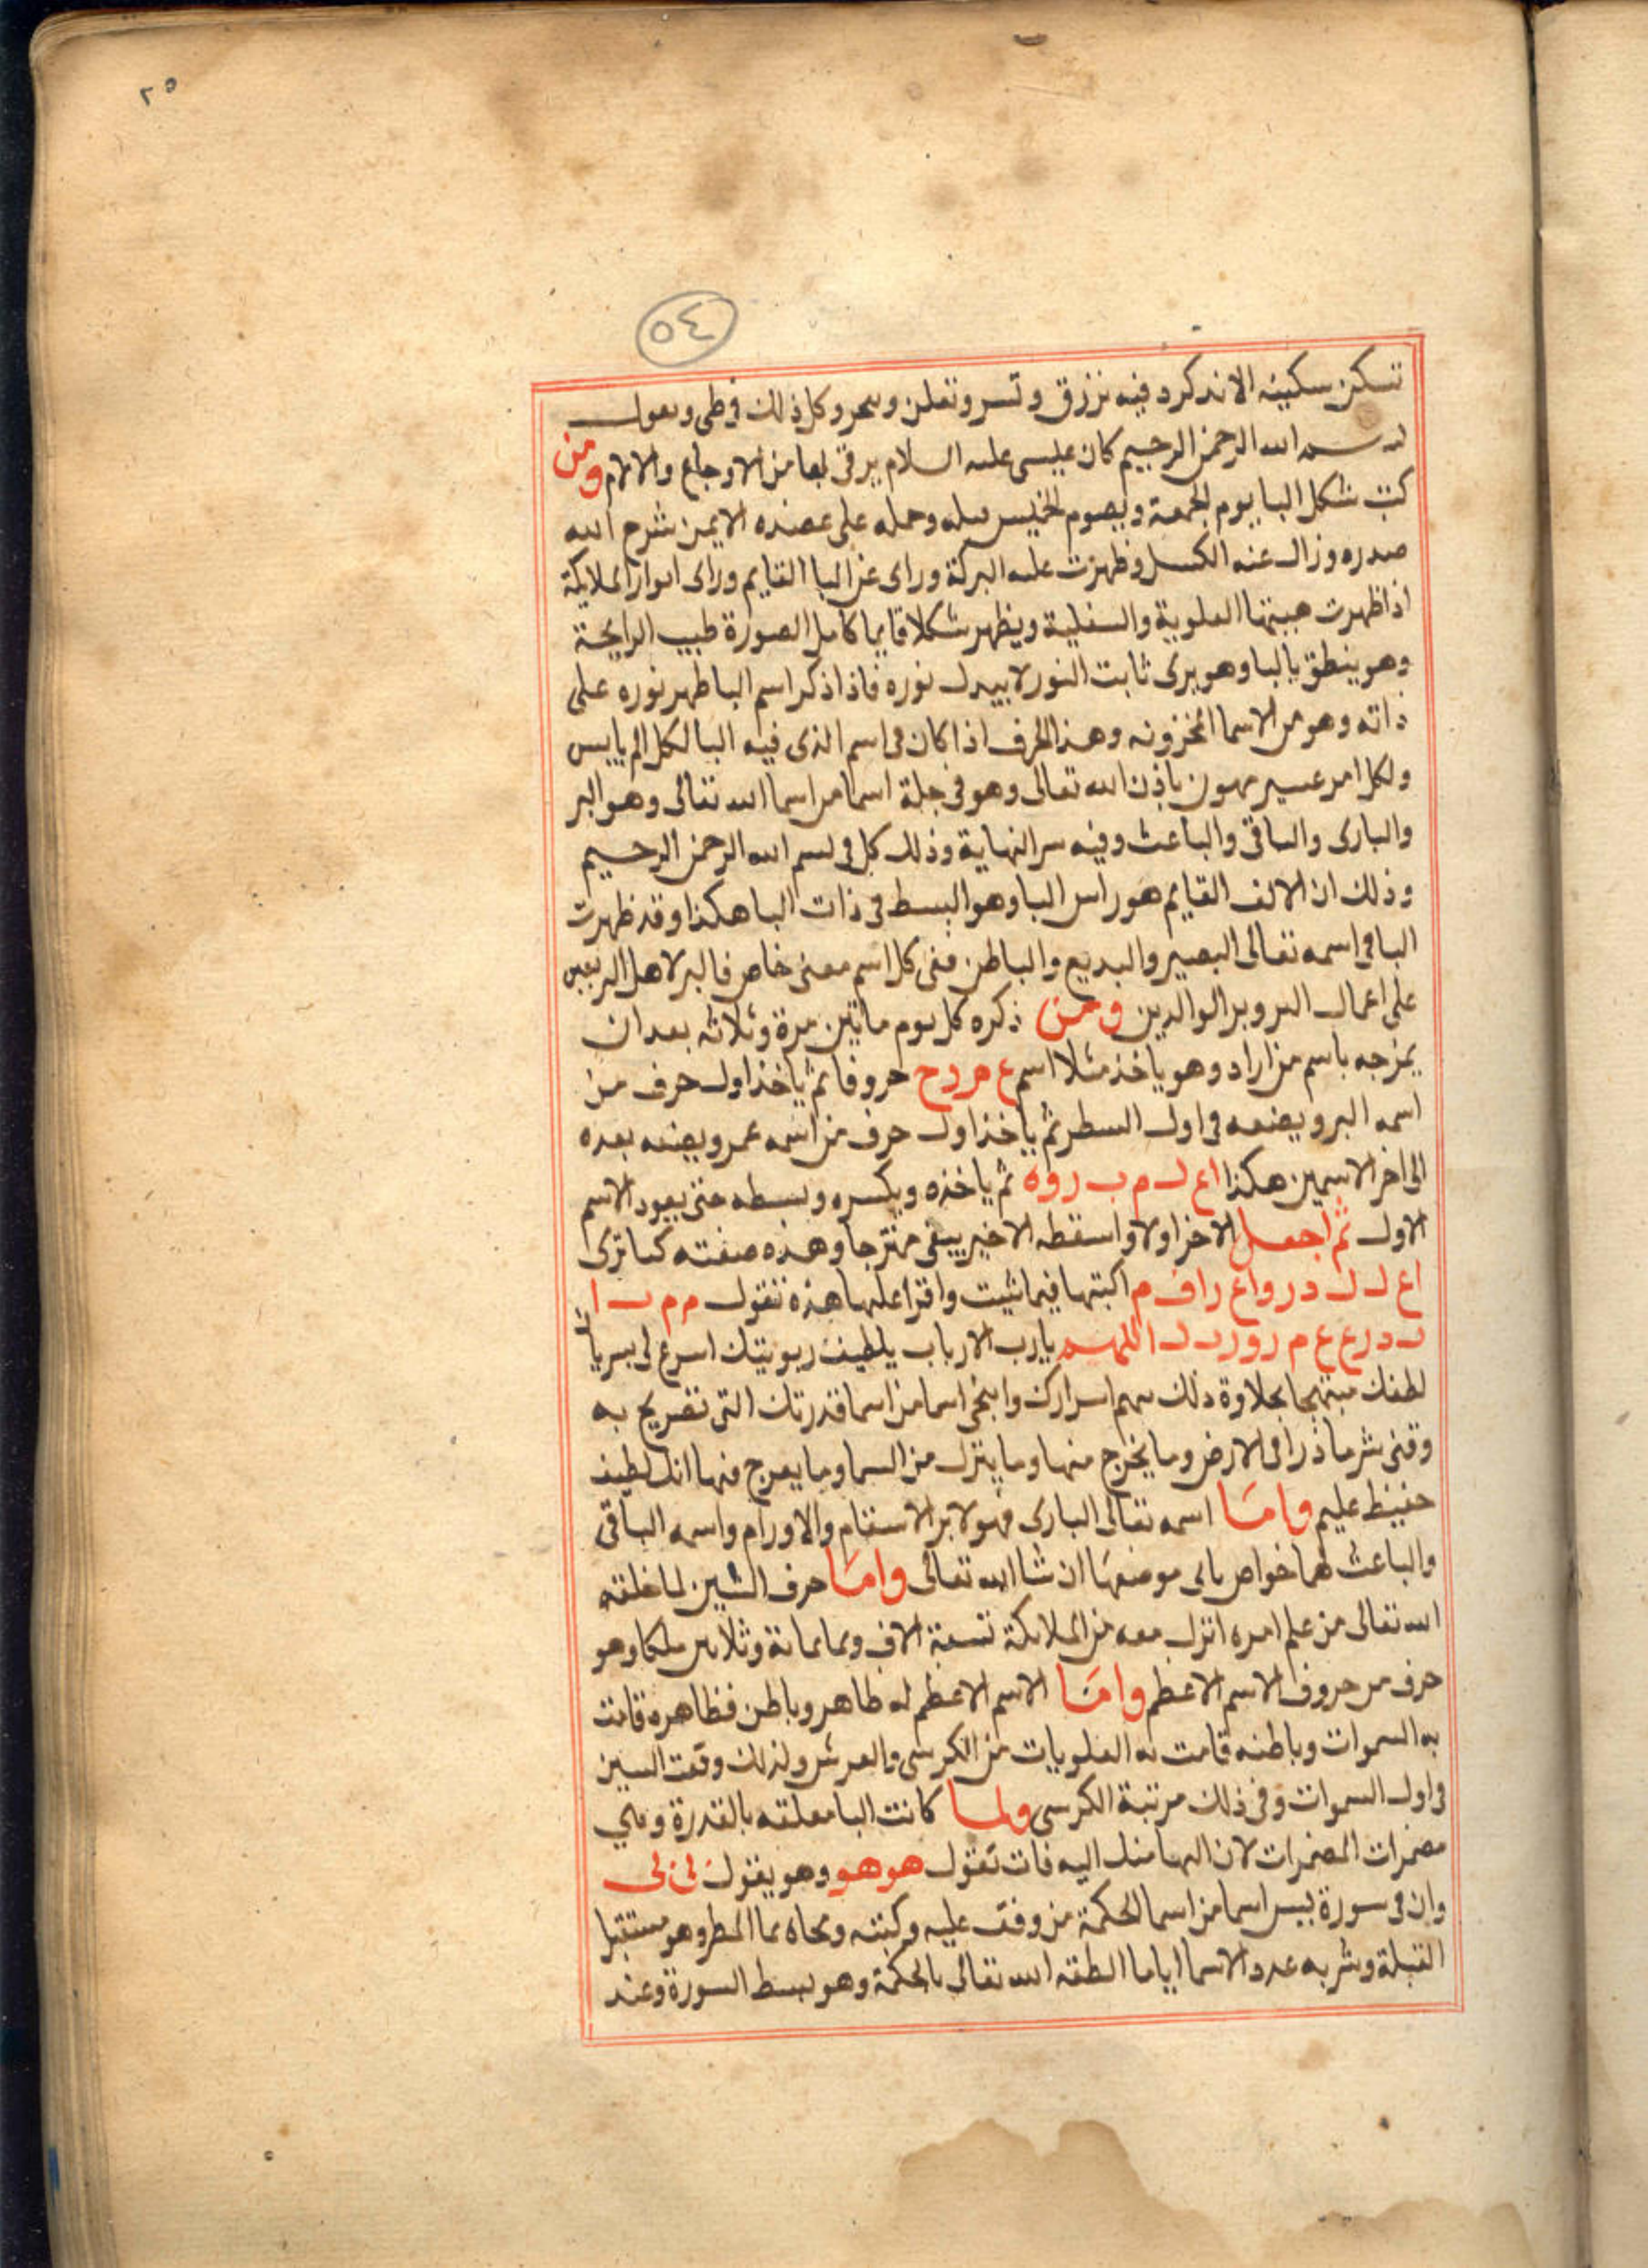 ٢٥
٥٤
تسكن سكينه الا تذكرد فيه نرزق وتسر وتعلن وكل ذلك في طي ويقول
بسم الله الرحمن الرحيم كان عيسى عليه السلام يرقى بها من الاوجاع والالام ومن
كتب شكل البا يوم الجمعة ويصوم الخميس قبله وحمله على عضده الايمن شرح الله
صدره وزال عنه الكسل وظهرت عليه البركة وراى عن البا القايم وراى انوار الملايكة
اذا ظهرت هيبتها العلوية والسفلية ويظهر شكلا قايما كامل الصورة طيب الرايحة
وهو ينطق بالبا وهو يرى ثابت النور لا يبدل نوره فاذا ذكر اسم البا ظهر نوره على
ذاته وهو من الاسما المخزونه وهذا الحرف اذا كان في اسم الذي فيه البا لكل الم يابس
ولكل امر عسير يهون باذن الله تعالى وهو في جملة اسما من اسما الله تعالى وهو البر
والبارى والباقي والباعث وفيه سر النهاية وذلك كل في بسم الله الرحمن الرحيم
وذلك ان الالف القايم هو راس البا وهو البسط في ذات البا هكذا وقد ظهرت
البا في اسمه تعالى البصير والبديع والباطن ففي كل اسم معنى خاص فالبر لاهل
على اعمال البر وبر الوالدين ومن ذكره كل يوم مايتين مرة وثلاثه بعد ان
يمزجه باسم من اراد وهو ياخذ مثلا اسم ع م ر و ح حروفا ثم ياخذ اول حرف من
اسمه البر ويضعه في اول السطر ثم ياخذ اول حرف من اسمه عمر ويضعه بعده
الى اخر الاسمين هكذا ا ع ل م ب ر و ه ثم ياخذه ويكسره وبسطه حتى يعود الاسم
الاول ثم اجعل الاخر اولا واسقطه الاخير يبقى ممتزجا وهذه صفته كما ترى
ا ع ل ل د ر و ا ع ر ا ف م اكتبها فيما شيت واقرا عليها هذه تقول م م ب ا
ب د ر ع ع م ر و ر ب ل ا اللهم يارب الارباب يلطيف ربوبيتك اسرع لي بسريان
لطفك مبتهجا بحلاوة ذلك سهم اسرارك وامنحني اسما من اسما قدرتك التي تفريج به
وقني شر ما ذرا في الارض وما يخرج منها وما ينزل من السما وما يعرج فيها انك لطيف
حفيظ عليم واما اسمه تعالى البارى فهو لابر الاسقام والاورام واسمه الباقي
والباعث لهما خواص ياتي موضعها ان شا الله تعالى واما حرف الشين لما خلقه
الله تعالى من علم امره انزل معه من الملايكة تسعة الاف وثمانماية وثلاثين ملكا وهو
حرف من حروف الاسم الاعظم واما الاسم الاعظم له ظاهر وباطن فظاهره قامت
به السموات وباطنه قامت به العلويات من الكرسي والعرش ولذلك وقعت السين
في اول السموات وفي ذلك مرتبة الكرسي ولما كانت البا معلقه بالقدرة وهي
مضمرات المضمرات لان البها منك اليه فات تقول هو هو وهو يقول لي لي
وان في سورة يس اسما من اسما الحكمة من وقف عليه وكتبه ومحاه بما المطر وهو مستقبل
القبلة وشربه عدد الاسما اياما انطقه الله تعالى بالحكمة وهو بسط السورة وعند